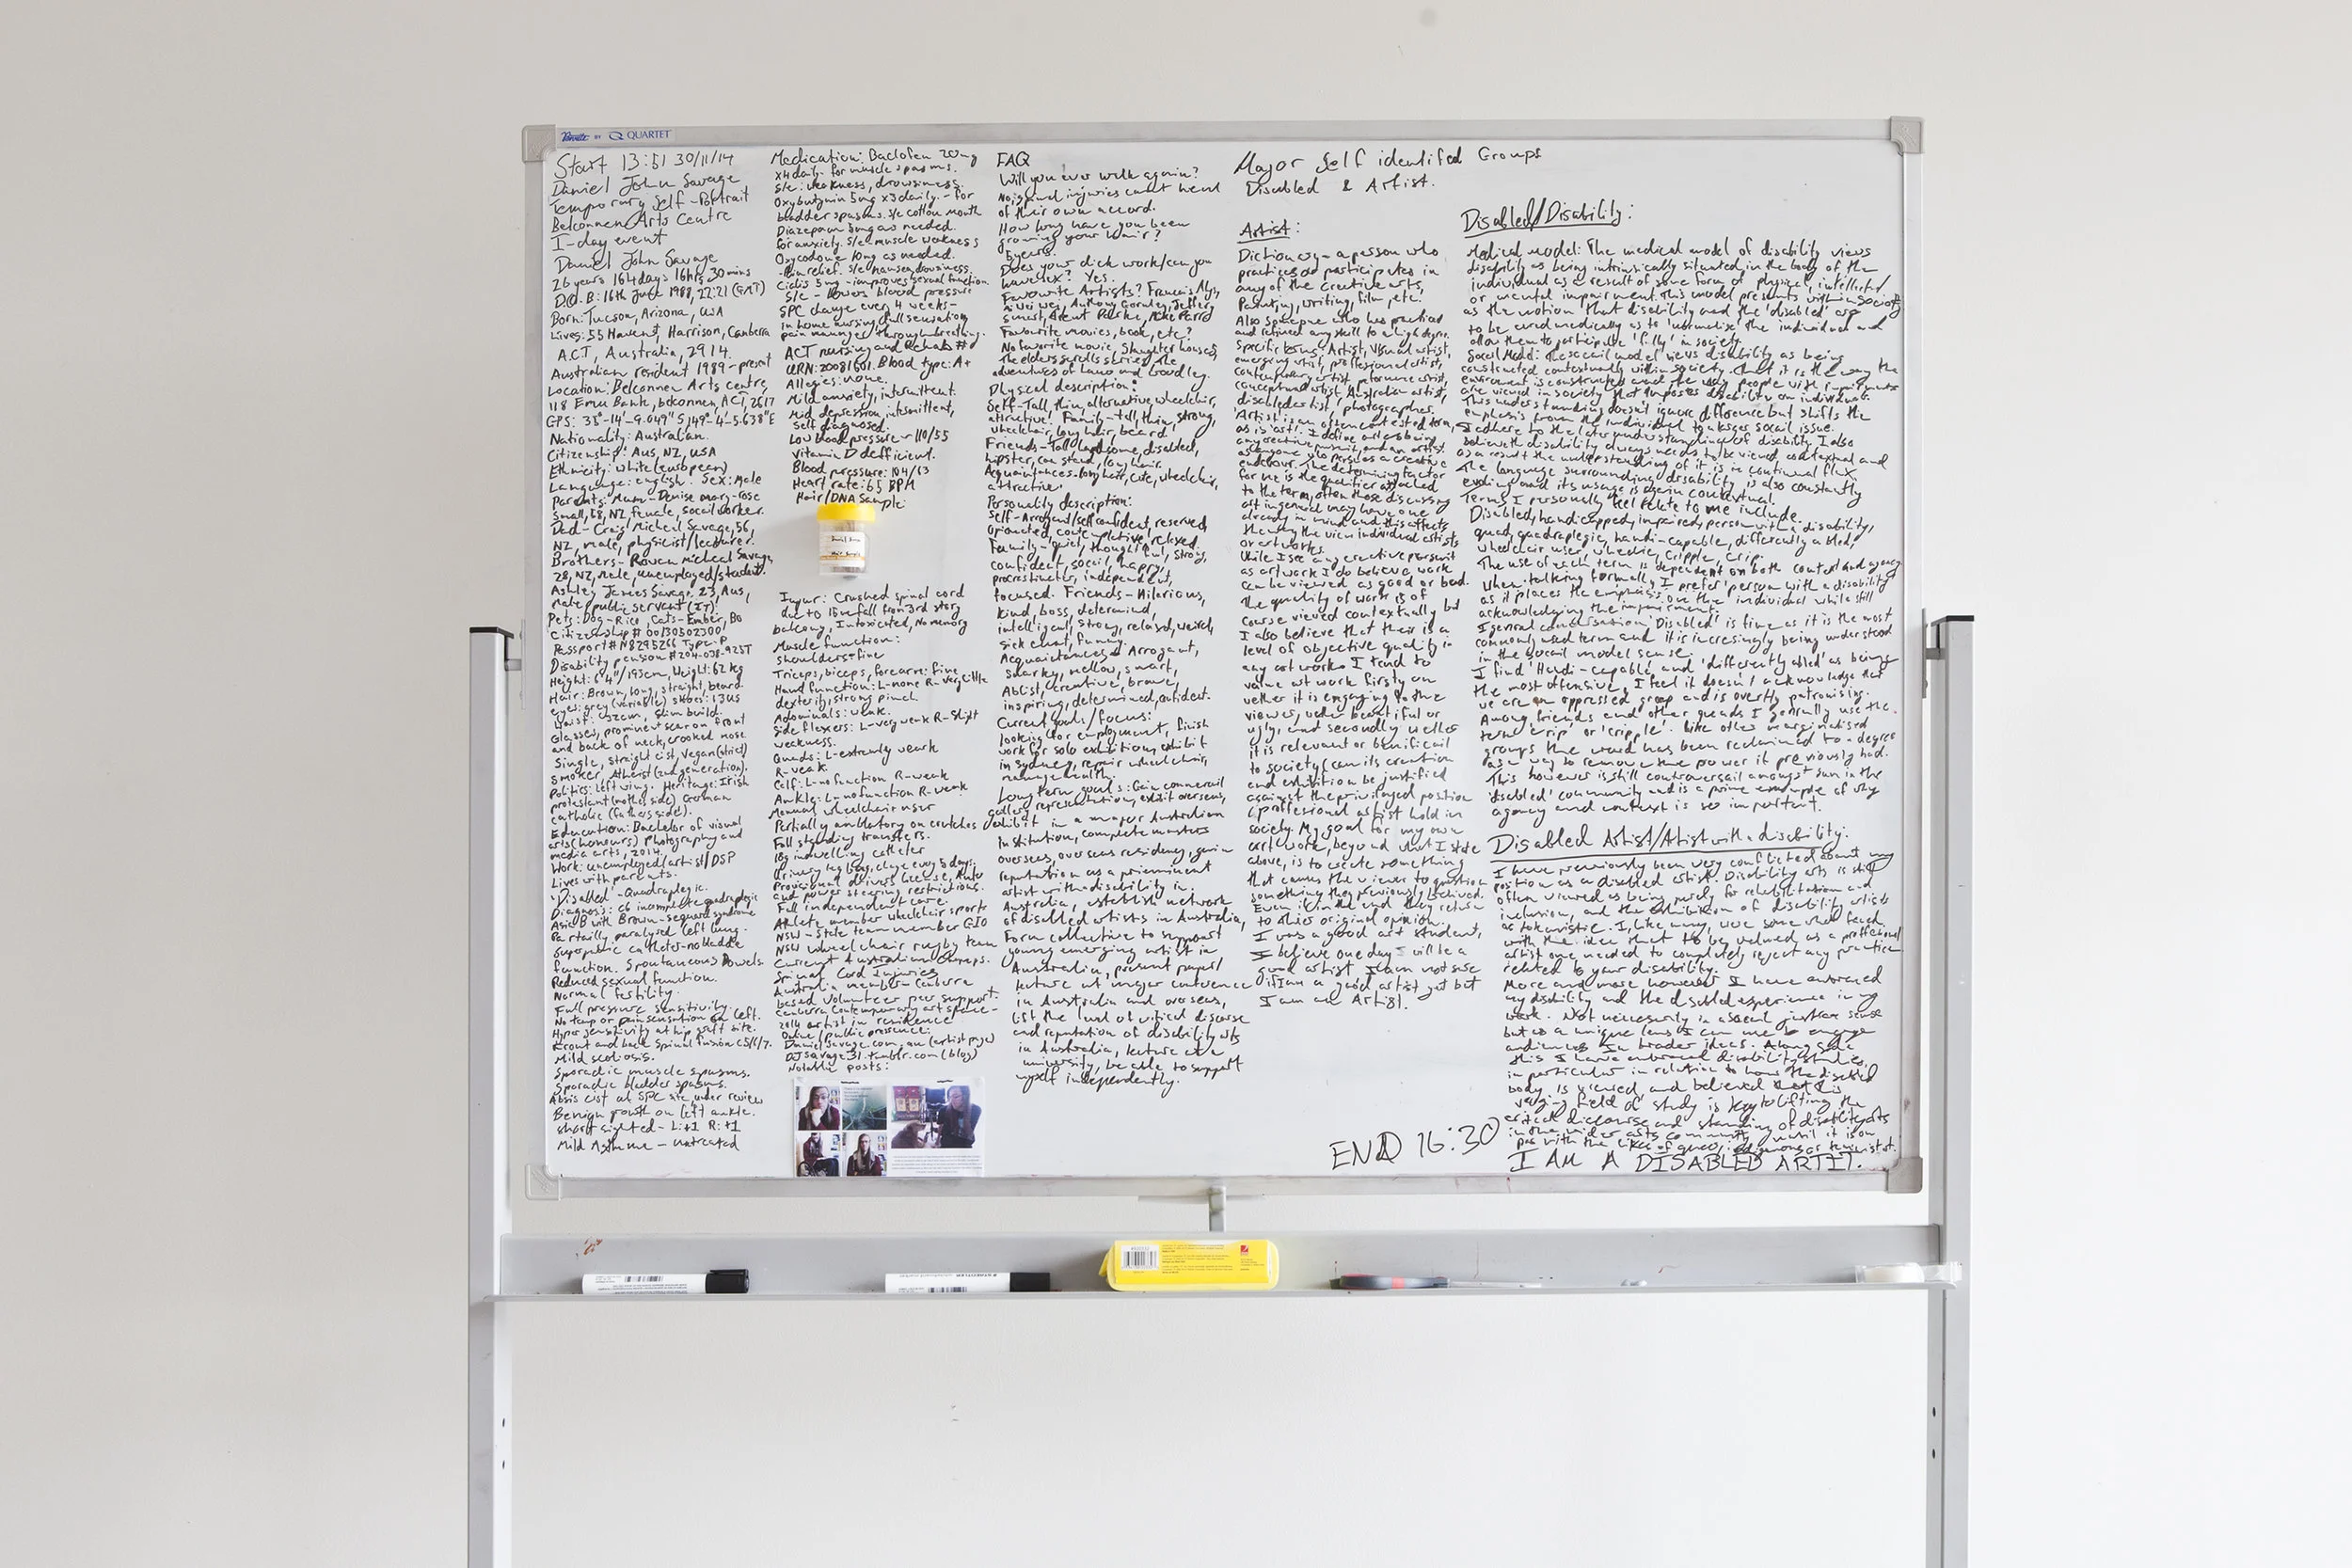 BY QUARTET
Start 13:51 30/11/14
Daniel John Savage
Temporary Self-Portrait
Belconnen Arts Centre
1-day event
Daniel John Savage
26 years 164 days 16hrs 30 mins
Born: Tucson, Arizona, USA
A.C.T, Australia, 2914.
Australian resident 1989-present
Location: Belconnen Arts centre,
118 Emu Bank, belconnen, ACT, 2617
Nationality: Australian.
Citizenship: Aus, NZ, USA
Ethnicity: White (european)
Language: english. Sex: Male
Height: 6'4"/193cm, Weight: 62 kg
Hair: Brown, long, straight, beard.
and back of neck, crooked nose
Single, straight cist, vegan (strict)
Smoker, Atheist (2nd generation).
Politics: Left wing. Heritage: Irish
protestant (mother side) German
catholic (fathers side).
Education: Bachelor of visual
arts (honours) Photography and
media arts, 2014.
Work: unemployed/artist/DSP
Lives with parents.
'Disabled' - Quadraplegic.
Diagnosis: c6 incomplete quadraplegic
Partailly paralysed left lung.
function. Spontaneous Bowels.
Reduced sexual function.
Normal fertility.
Full pressure sensitivity.
Front and back Spinal fusion C5/6/7.
Mild scoliosis.
Sporadic muscle spasms.
Sporadic bladder spasms.
Benign growth on left ankle.
short sighted - L:+1 R:+1
Mild Asthma - untreated
Medication: Baclofen 20mg
x4 daily. for muscle spasms.
s/e: weakness, drowsiness.
Oxybutynin 5mg x3 daily. - for
bladder spasms. s/e cotton mouth
Diazepam 5mg as needed.
for anxiety. s/e - muscle weakness
Oxycodone 10mg as needed.
- Pain relief. s/e nausea, drowsiness.
Cialis 5mg - improves sexual function.
s/e - lowers blood pressure
SPC change every 4 weeks-
Allergies: none.
Mild anxiety, intermittent.
Mid depression, intermittent,
self diagnosed.
Low blood pressure ~ 110/55
Vitamin D defficient.
Blood pressure: 104/63
Heart rate: 65 BPM
Hair/DNA Sample:
Injur: Crushed spinal cord
due to 15m fall from 3rd story
balcony, Intoxicated, No memory
Muscle function:
shoulders: fine
Triceps, biceps, forearm: fine
Hand function: L-none R-very little
dexterity, strong pinch
Adominals: weak.
side flexers: L-very weak R-Slight
weakness.
Quads: L-extremly weark
R-weak.
Calf: L-no function R-weak
Ankle: L-no function R-weak
Manual wheelchair user
Partially ambulatory on crutches
Full standing transfers.
18g indwelling catheter
and power steering restrictions.
Full independent care.
Athlete member wheelchair sports
NSW - State team member GIO
NSW wheelchair rugby team
Current Australian Champs.
Spinal Cord Injuries
Australia member - Canberra
based volunteer peer support.
Canberra Contemporary art space -
2014 artist in residence
Online/public presence:
Danielsavage.com.au (artist page)
DJSavage31.tumblr.com (blog)
Notable posts:
FAQ
Will you ever walk again?
No, spinal injuries cant heal
of their own accord.
How long have you been
growing your hair?
6 years.
Does your dick work/can you
have sex? Yes.
Favourite Artists? Francis Alys,
Favourite movies, book, etc?
Physical description:
Self-Tall, thin, alternative, wheelchair,
attractive. Family - tall, thin, strong,
wheelchair, long hair, beard
Friends - Tall, handsome, disabled,
hipster, can stand, long hair.
Acquaintances - long hair, cute, wheelchair,
attractive.
Personality description:
Self-Arrogant/self confident, reserved,
Family - quiet, thoughtful, strong,
confident, socail, happy,
procrastinator, independent,
focused. Friends - Hilarious,
kind, boss, determind,
intelligent, strong, relaxed, weird,
sick cunt, funny.
Acquaintances - Arrogant,
Snarky, mellow, smart,
Ablist, creative, brave,
inspiring, determined, confident.
Current goals/focus:
looking for employment, finish
work for solo exhibition, exhibit
in Sydney, repair wheelchair,
manage health.
Long term goals: Gain commercail
gallery representation, exhibit overseas,
exhibit in a major Australian
Institution, complete masters
overseas, overseas residency, gain
reputation as a prieminent
artist with a disability in
Australia, establish network
of disabled artists in Australia,
Form collective to support
young emerging artist in
Australia, present paper/
lecture at major conference
in Australia and overseas,
lift the level of critical discourse
and reputation of disability arts
in Australia, lecture at a
university, be able to support
myself independently.
Major Self identifed Groups
Disabled & Artist.
Artist:
Dictionary - a person who
practices or participates in
any of the creative arts,
Painting, writing, film, etc.
Also someone who has practiced
and refined any skill to a high degree.
Specific terms: Artist, Visual artist,
emerging artist, professional artist,
contemporary artist, performance artist,
conceptual artist, Australian artist,
disabled artist, photographer.
'Artist' is an often contested term,
as is 'art'. I define art as being
any creative pursuit, and an artist
as anyone who persues a creative
endeavour. The determining factor
for me is the qualifier attached
to the term, often those discussing
art in general may have one
already in mind and this affects
the way the view individual artists
or artworks.
While I see any creative persuit
as artwork I do believe work
can be viewed as good or bad.
The quality of work is of
course viewed contextually but
I also believe that their is a
level of objective quality in
any artwork. I tend to
value art work firstly on
wether it is engaging to the
viewer, wether beautiful or
ugly, and secondly wether
it is relevant or benificail
to society (can its creation
and exhibition be justified
against the privilaged position
(proffesional artist hold in
society. My goal for my own
art work, beyond what I state
above, is to create something
that causes the viewer to question
something they previously believed.
Even if in the end they return
to thier original opinion.
I was a good art student,
I believe one day I will be a
good artist, I am not sure
if I am a good artist yet but
I am an Artist.
Disabled/Disability:
Medical model: The medical model of disability views
disability as being intrinsically situated in the body of the
individual as a result of some form of physical, intellectual
or mental impairment. This model presents within society
as the notion that disability and the 'disabled' are
to be cured medically as to 'normalise' the individual and
allow them to participate 'fully' in society.
Socail Model: The socail model views disability as being
constructed contextually within society. That it is the way the
enviroment is constructed and the way people with impairments
are viewed in society that imposes disability on individuals.
This understanding doesn't ignore difference but shifts the
emphesis from the individual to a larger socail issue.
I adhere to the later understanding of disability. I also
believe the disability always needs to be viewed contextual and
as a result the understanding of it is in continual flux.
The language surrounding disability is also constantly
evolving and its usage is again contextual.
Terms I personally feel relate to me include.
Disabled, handicapped, impaired, person with a disability,
quad, quadraplegic, handi-capable, differently abled,
wheelchair user, wheelie, cripple, crip.
The use of each term is dependent on both context and agency
When talking formally I prefer 'person with a disability'
as it places the emphasis on the individual while still
acknowledging the impairment.
I general conversation 'Disabled' is fine as it is the most
commonly used term and it is incresingly being understood
in the socail model sense.
I find 'Handi-capable' and 'differently abled' as being
the most offensive, I feel it doesn't acknowledge that
we are an oppressed group and is overtly patronising.
Among friends and other quads I generally use the
term 'crip' or 'cripple'. Like other marginalised
groups the word has been reclaimed to a degree
as a way to remove the power it previously had.
This however is still controversail amongst sum in the
'disabled' community and is a prime example of why
agency and context is so important.
Disabled Artist/Artist with a disability:
I have previously been very conflicted about my
position as a disabled artist. Disability arts is still
often viewed as being purely for rehabilitation and
inclusion, and the exhibition of disability artists
as tokenistic. I, like many, was some what faced
with the idea that to be valued as a proffesional
artist one needed to completely reject any practice
related to your disability.
More and more however I have embraced
my disability and the disabled experience in my
work. Not necessarily in a socail justice sense
but as a unique lens I can use to engage
audiences in broader ideas. Along side
this I have embraced disability studies,
in particular in relation to how the disabled
body is viewed and believed that this
critical discourse and standing of disability arts
in the wider arts community until it is on
I AM A DISABLED ARTIT.
END 16:30